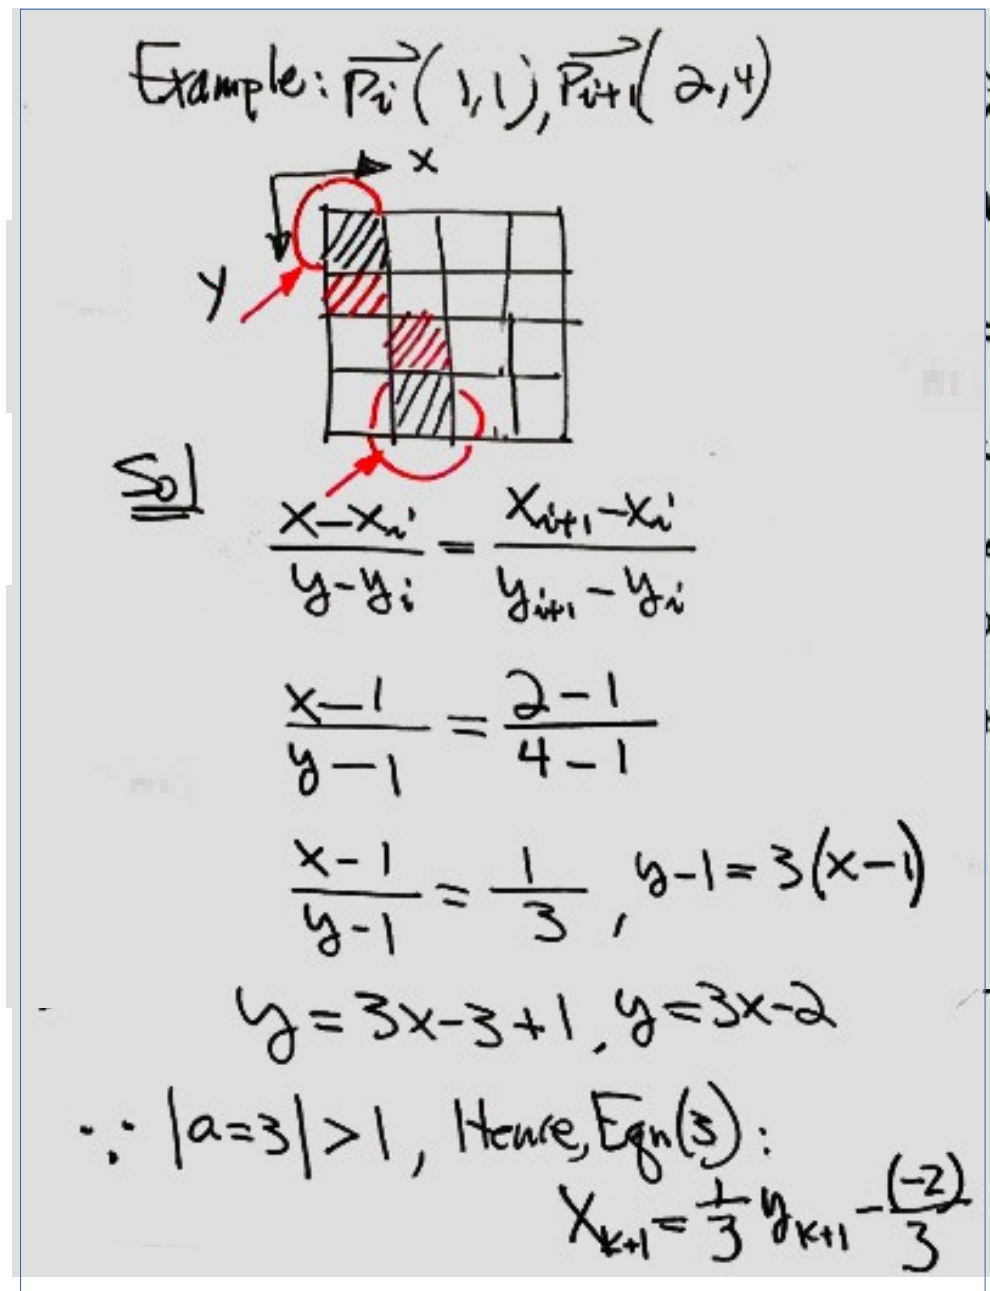 Example: Pi(1,1), Pi+1(2,4)
x
y
Sol
(x-xi)/(y-yi) = (xi+1-xi)/(yi+1-yi)
(x-1)/(y-1) = (2-1)/(4-1)
(x-1)/(y-1) = 1/3, y-1=3(x-1)
y=3x-3+1, y=3x-2
∵ |a=3|>1, Hence, Eqn(3):
xk+1 = 1/3 yk+1 - (-2)/3